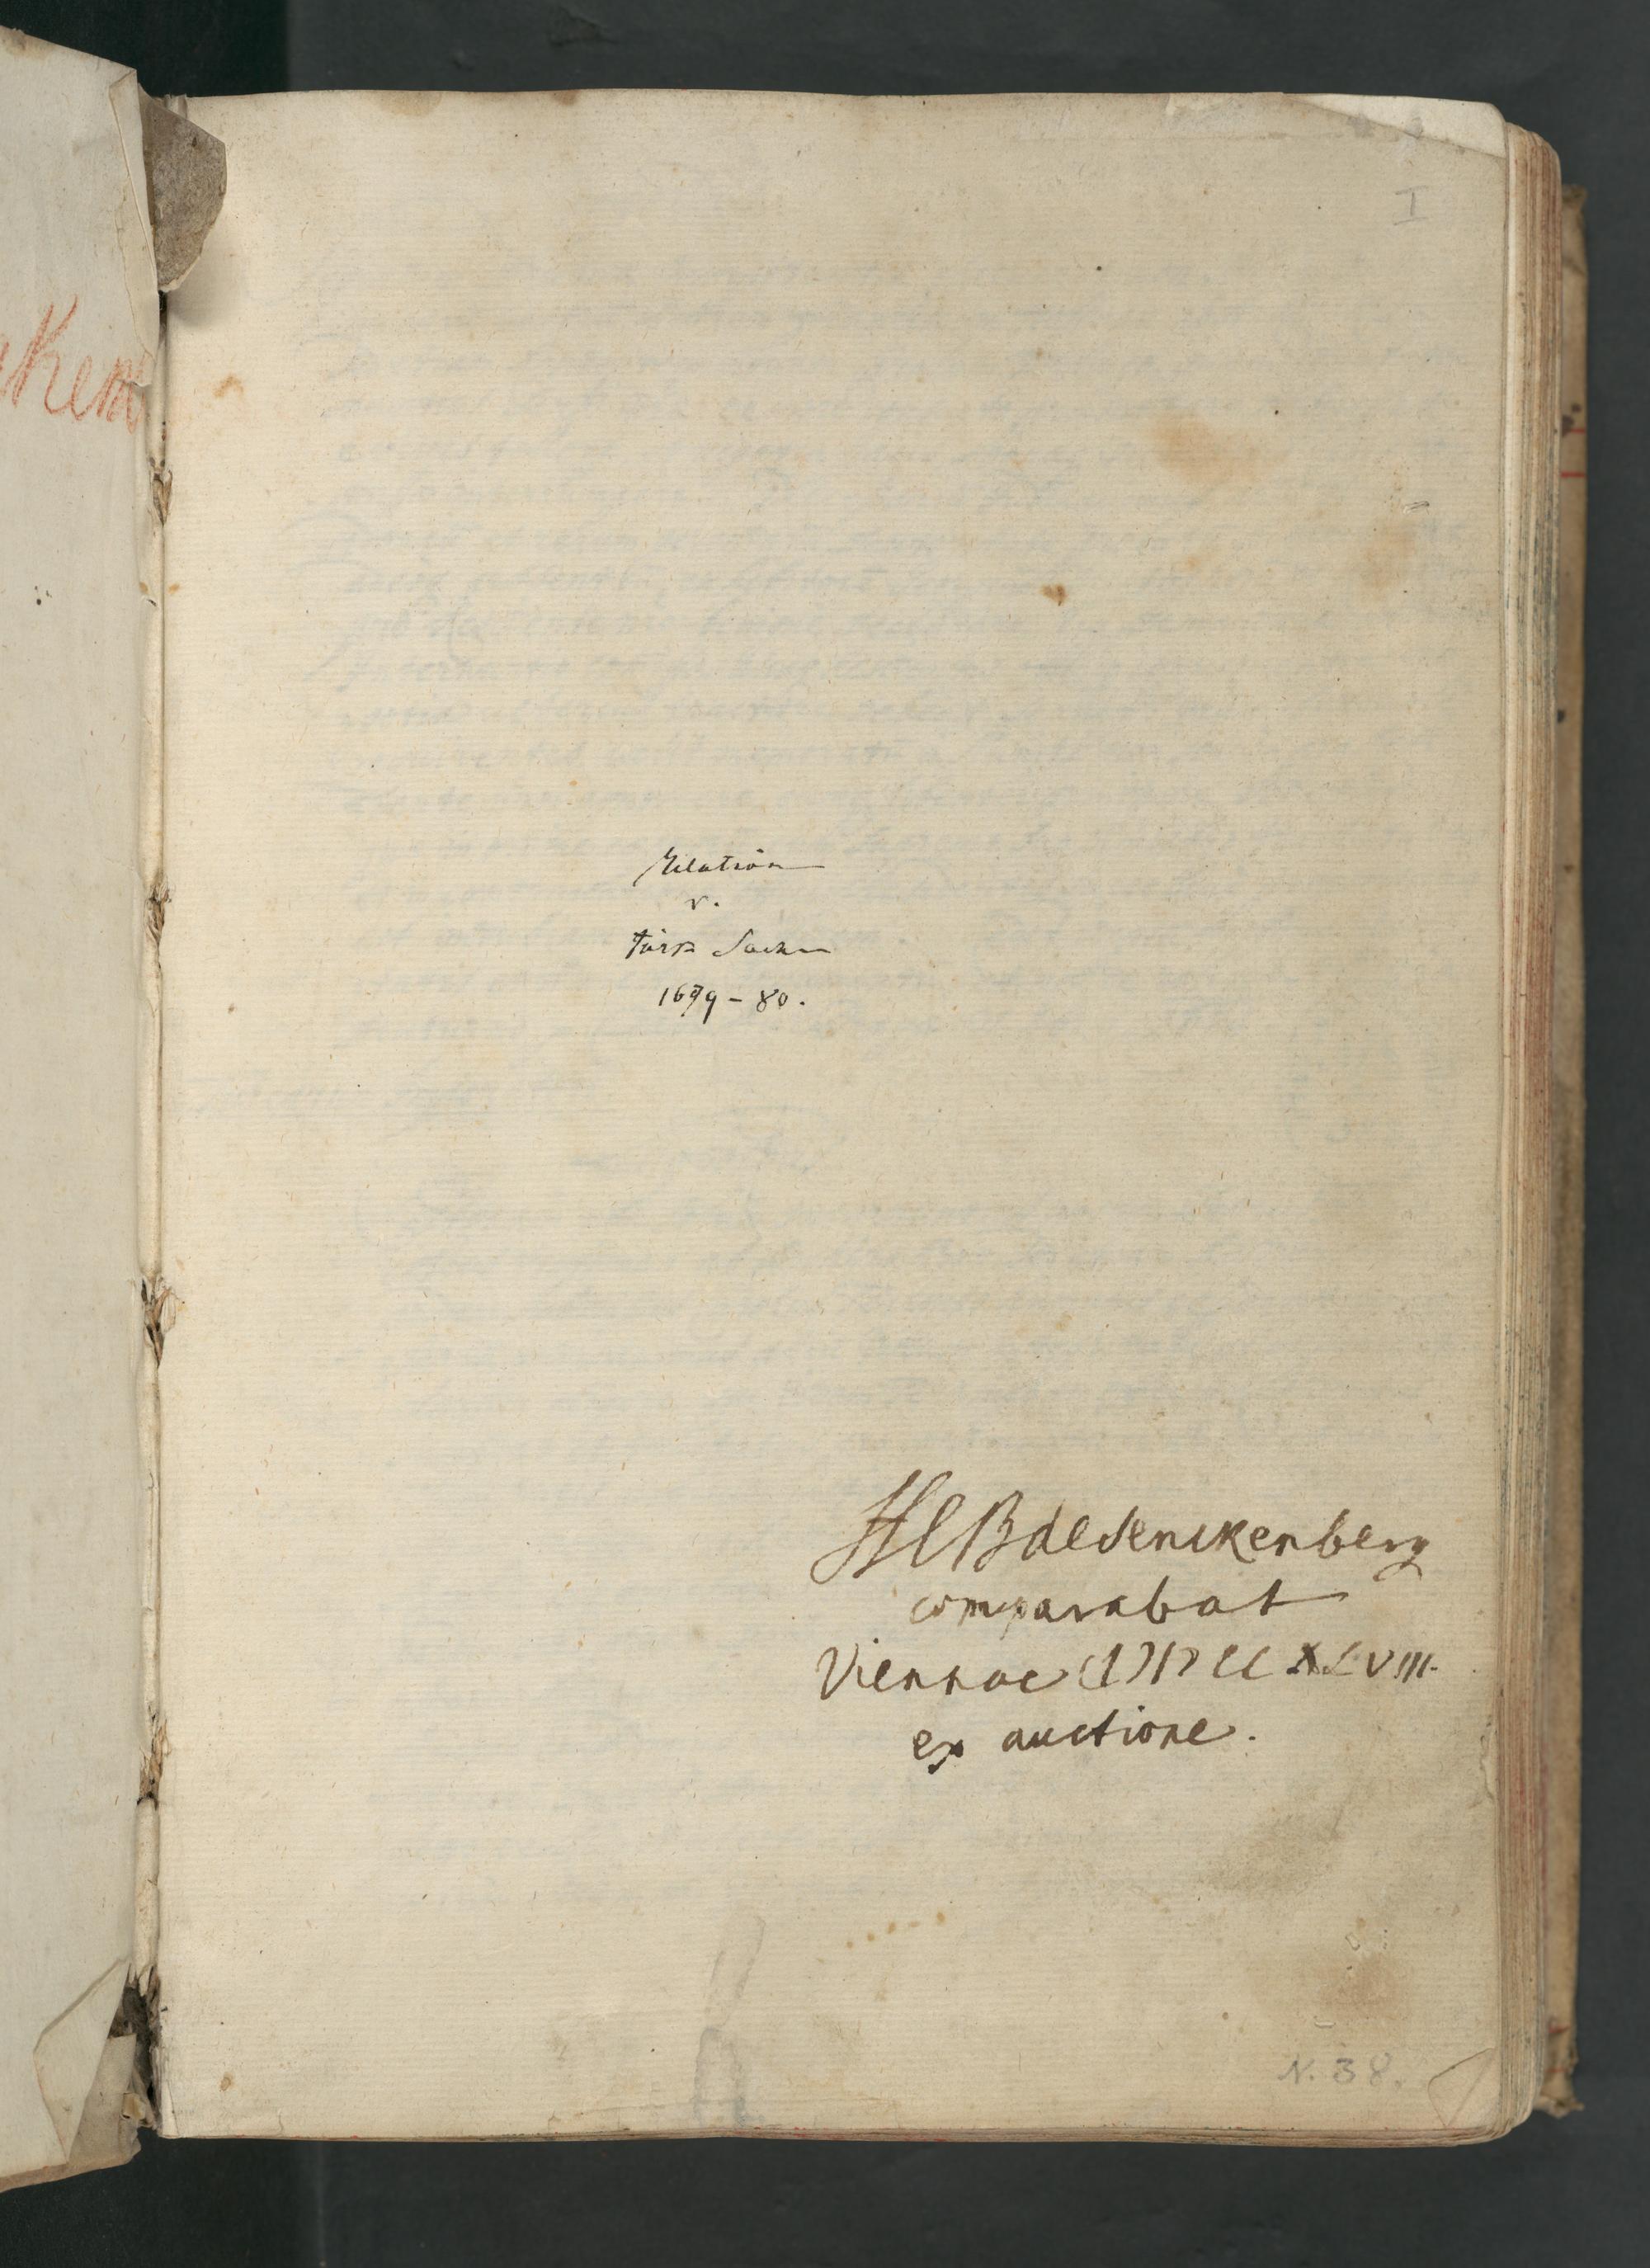 I
Relation
v.
türk Sachen
1679-80.
HCB de Senckenberg
comparabat
Viennae (I)I)CCXLVIII.
ex auctione.
N. 38.